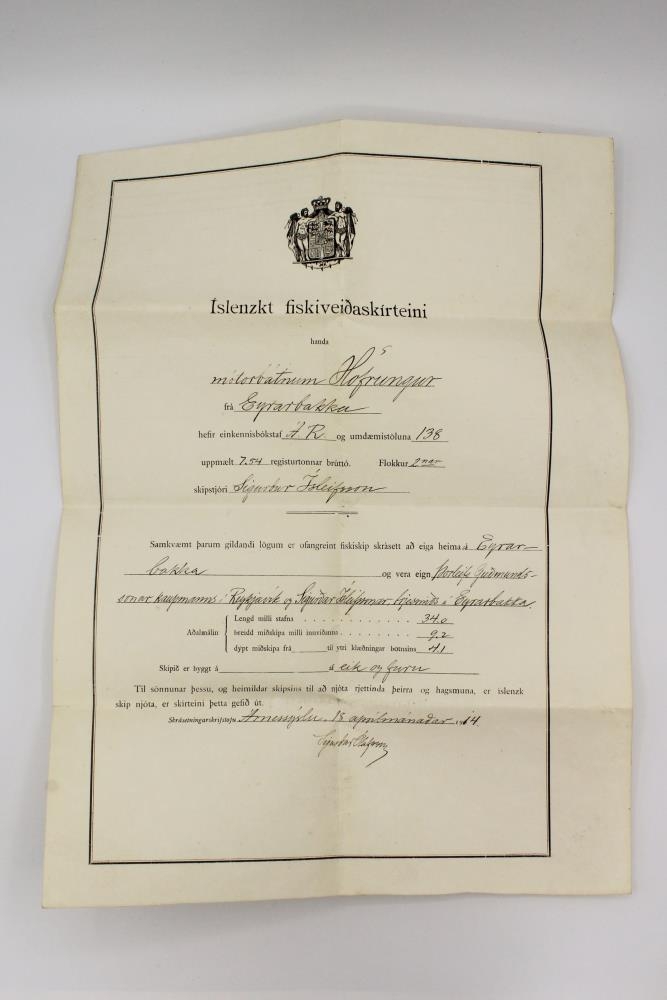 Íslenzkt fiskiveiðaskírteini
handa
mótorbátnum Höfrungur
frá Eyrarbakka
hefir einkennisbókstaf Á.R. og umdæmistöluna 138
uppmælt 7.54 registurtonnar brúttó. Flokkur 2nar
skipstjóri Sigurður Ísleifsson
Samkvæmt þarum gildandi lögum er ofangreint fiskiskip skrásett að eiga heima á Eyrar-
bakka og vera eign Þorleifs Guðmunds-
sonar kaupmanns í Reykjavík og Sigurðar Ísleifssonar, trjesmiðs á Eyrarbakka.
Aðalmálin
Lengd milli stafna 34.0
breidd miðskipa milli innviðanna 9.2
dýpt miðskipa frá til ytri klæðningar botnsins 4.1
Skipið er byggt á á eik og furu
Til sönnunar þessu, og heimildar skipsins til að njóta rjettinda þeirra og hagsmuna, er íslenzk
skip njóta, er skírteini þetta gefið út.
Skrásetningarskrifstofu Árnessýslu, 18 aprílmánaðar 1914.
Sigurður Ólafsson